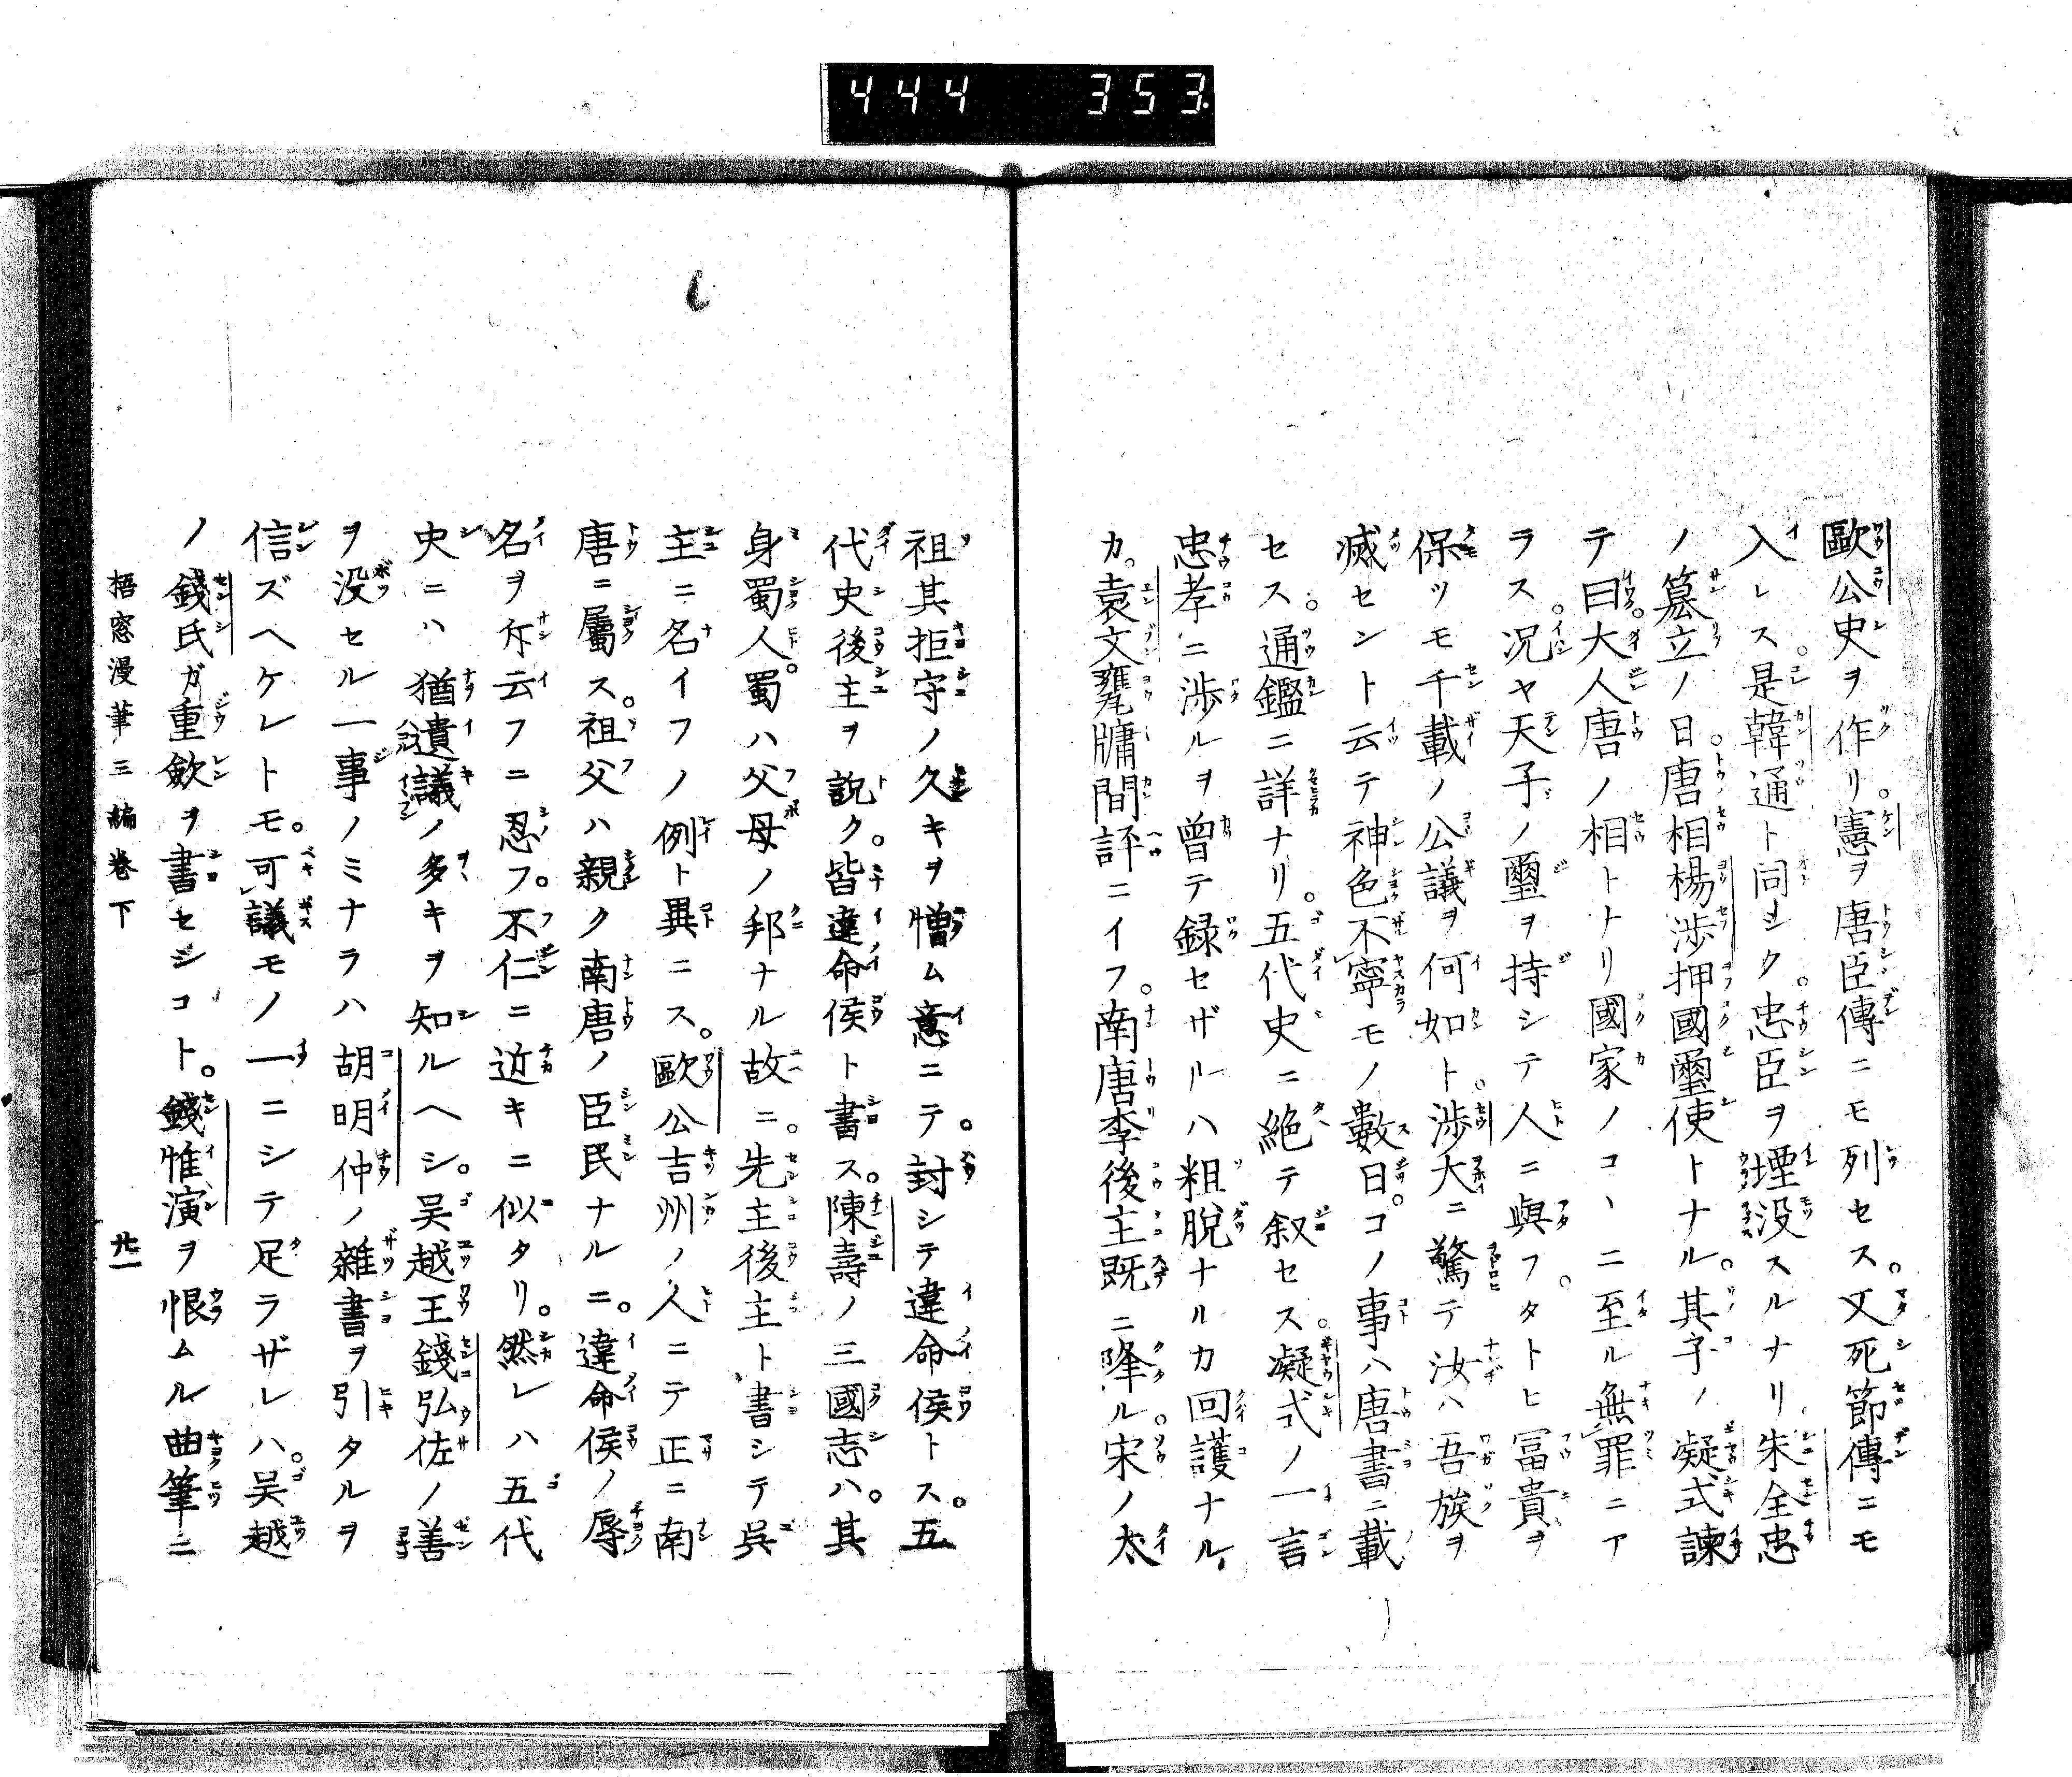 444 353.
歐公史ヲ作リ。憲ヲ唐臣傳ニモ列セス。又死節傳ニモ
入レス。是韓通ト同シク。忠臣ヲ堙没スルナリ。朱全忠
ノ簒立ノ日。唐相楊渉押國璽使トナル。其子ノ凝式諫
テ曰。大人唐ノ相トナリ國家ノコヽニ至ル無罪ニア
ラス。况ヤ天子ノ璽ヲ持シテ人ニ與フ。タトヒ冨貴ヲ
保ツモ千載ノ公議ヲ何如ト。渉大ニ驚テ汝ハ吾族ヲ
滅セント云テ神色不寧モノ數日。コノ事ハ唐書ニ載
セス。通鑑ニ詳ナリ。五代史ニ絶テ叙セス。凝式ノ一言
忠孝ニ渉ルヲ曾テ録セザルハ粗脱ナルカ回護ナル
カ。袁文甕牖間評ニイフ。南唐李後主既ニ降ル。宋ノ太
祖其拒守ノ久キヲ憎ム意ニテ。封シテ違命侯トス。五
代史後主ヲ説ク。皆違命侯ト書ス。陳壽ノ三國志ハ。其
身蜀人。蜀ハ父母ノ邦ナル故ニ。先主後主ト書シテ呉
主ニ名イフノ例ト異ニス。歐公吉州ノ人ニテ正ニ南
唐ニ屬ス。祖父ハ親ク南唐ノ臣民ナルニ。違命侯ノ辱
名ヲ斥云フニ忍フ。不仁ニ近キニ似タリ。然レハ五代
史ニハ猶遺議ノ多キヲ知ルヘシ。呉越王錢弘佐ノ善
ヲ没セル一事ノミナラハ胡明仲ノ雜書ヲ引タルヲ
信ズヘケレトモ。可議モノ一ニシテ足ラザレハ。呉越
ノ錢氏ガ重斂ヲ書セシコト。錢惟演ヲ恨ムル曲筆ニ
梧窓漫筆三編巻下 廿一